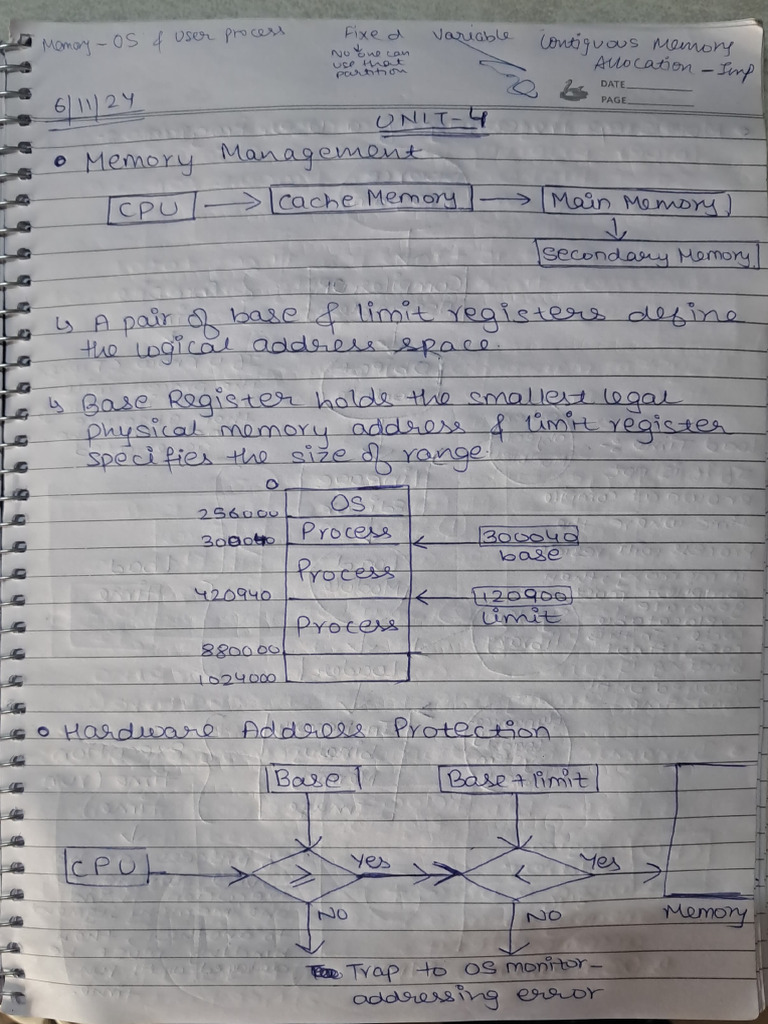 Memory - OS & User process
Fixed
No one can
use that
partition
Variable
Contiguous Memory
Allocation - Imp
DATE
PAGE
6/11/24
UNIT-4
• Memory Management
CPU → Cache Memory → Main Memory
↓
Secondary Memory
↳ A pair of base & limit registers define
the logical address space.
↳ Base Register holds the smallest legal
physical memory address & limit register
specifies the size of range.
0
OS
256000
Process
300040 ← 300040
base
Process
420940 ← 120900
limit
Process
880000
1024000
• Hardware Address Protection
Base Base + limit
CPU → ≥ Yes → < Yes →
NO NO Memory
Trap to OS monitor-
addressing error